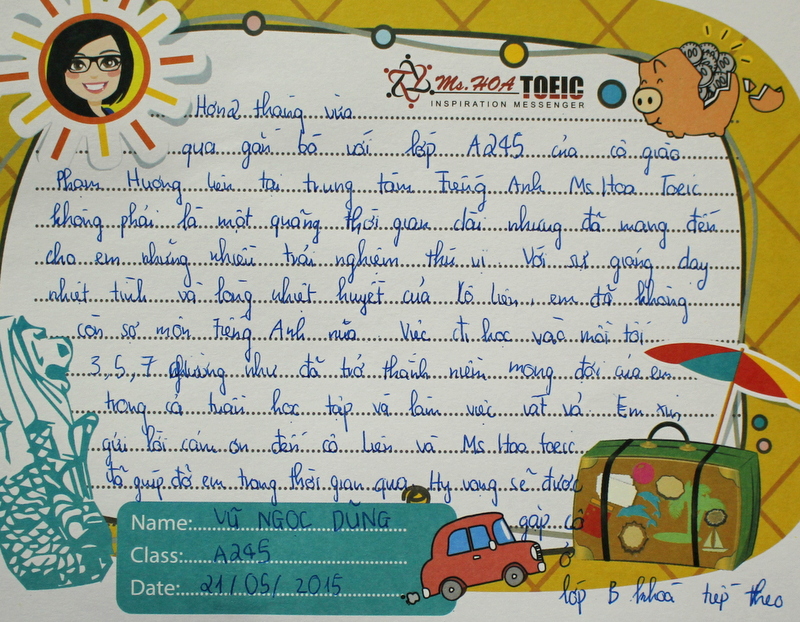 Ms.HOA TOEIC
INSPIRATION MESSENGER
Hơn 2 tháng vừa
qua gắn bó với lớp A245 của cô giáo
Phạm Hương Liên tại trung tâm tiếng Anh Ms Hoa Toeic
không phải là một quãng thời gian dài nhưng đã mang đến
cho em những nhiều trải nghiệm thú vị. Với sự giảng dạy
nhiệt tình và lòng nhiệt huyết của cô Liên, em đã không
còn sợ môn tiếng Anh nữa. Việc đi học vào mỗi tối
3, 5, 7 dường như đã trở thành niềm mong đợi của em
trong cả tuần học tập và làm việc vất vả. Em xin
gửi lời cám ơn đến cô Liên và Ms Hoa toeic
đã giúp đỡ em trong thời gian qua. Hy vọng sẽ được
gặp cô
ở
lớp B khoá tiếp theo
Name: VŨ NGỌC DŨNG
Class: A245
Date: 21/05/2015